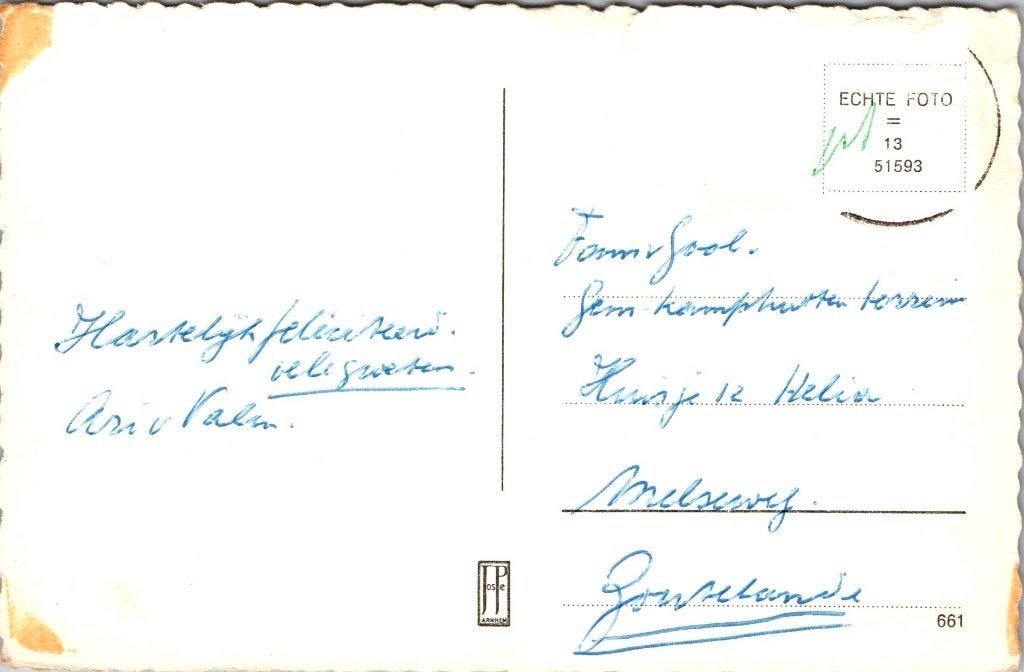 ECHTE FOTO
=
13
51593
Fam v Gool.
Gem. kamphutten terrein
Huisje 12 Helia
Melseweg.
Zoutelande
Hartelijk felicitaties.
vele groeten.
Ari v Valen.
JosPe
ARNHEM
661